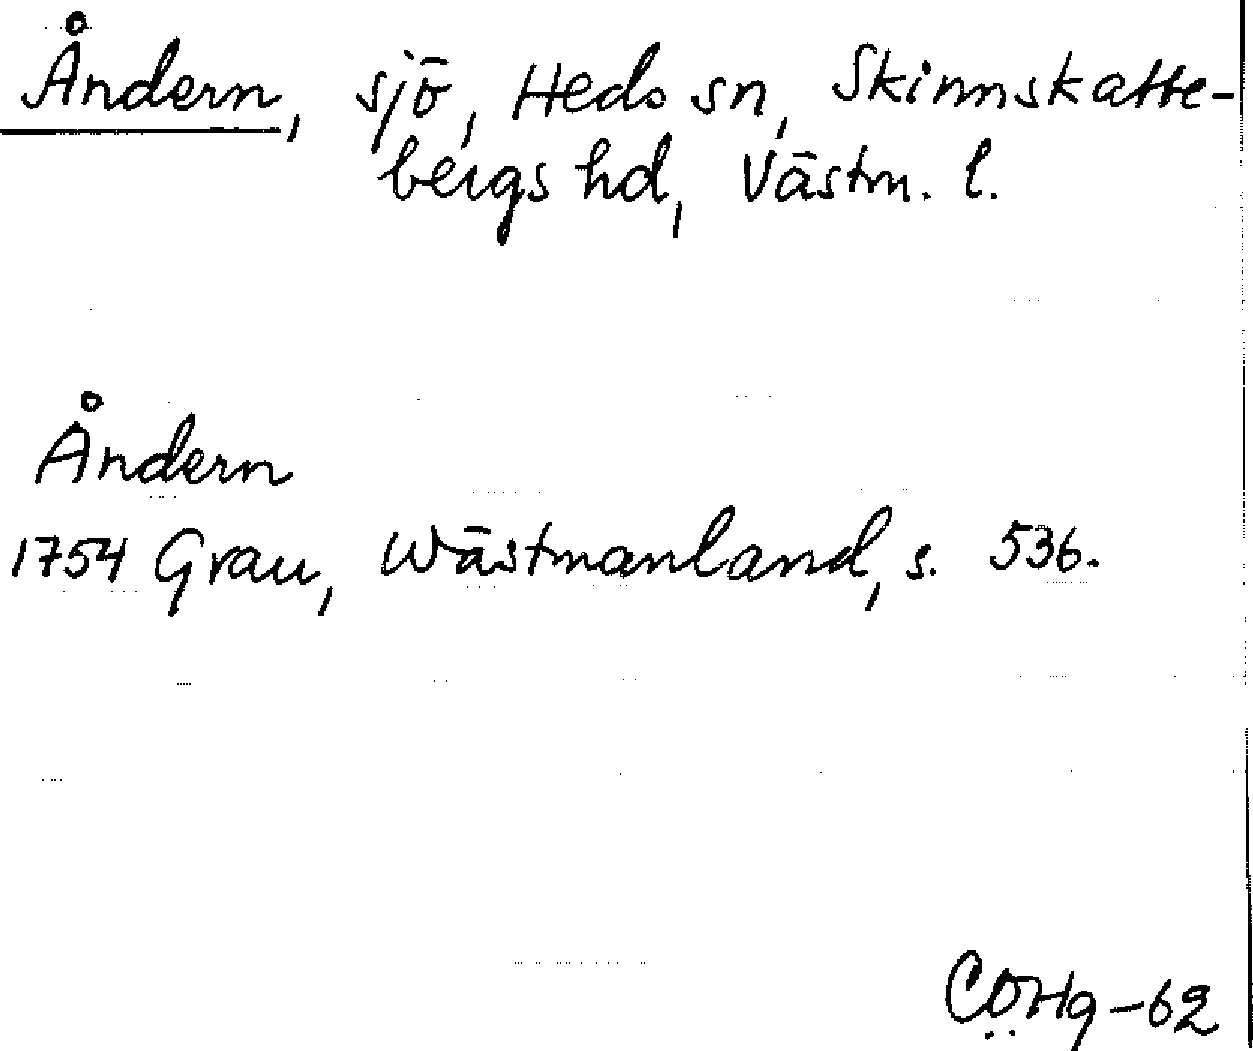 Åndern, sjö, Heds sn, Skinnskatte-
bergs hd, Västm. l.
Åndern
1754 Grau, Wästmanland, s. 536.
CÖHg-62